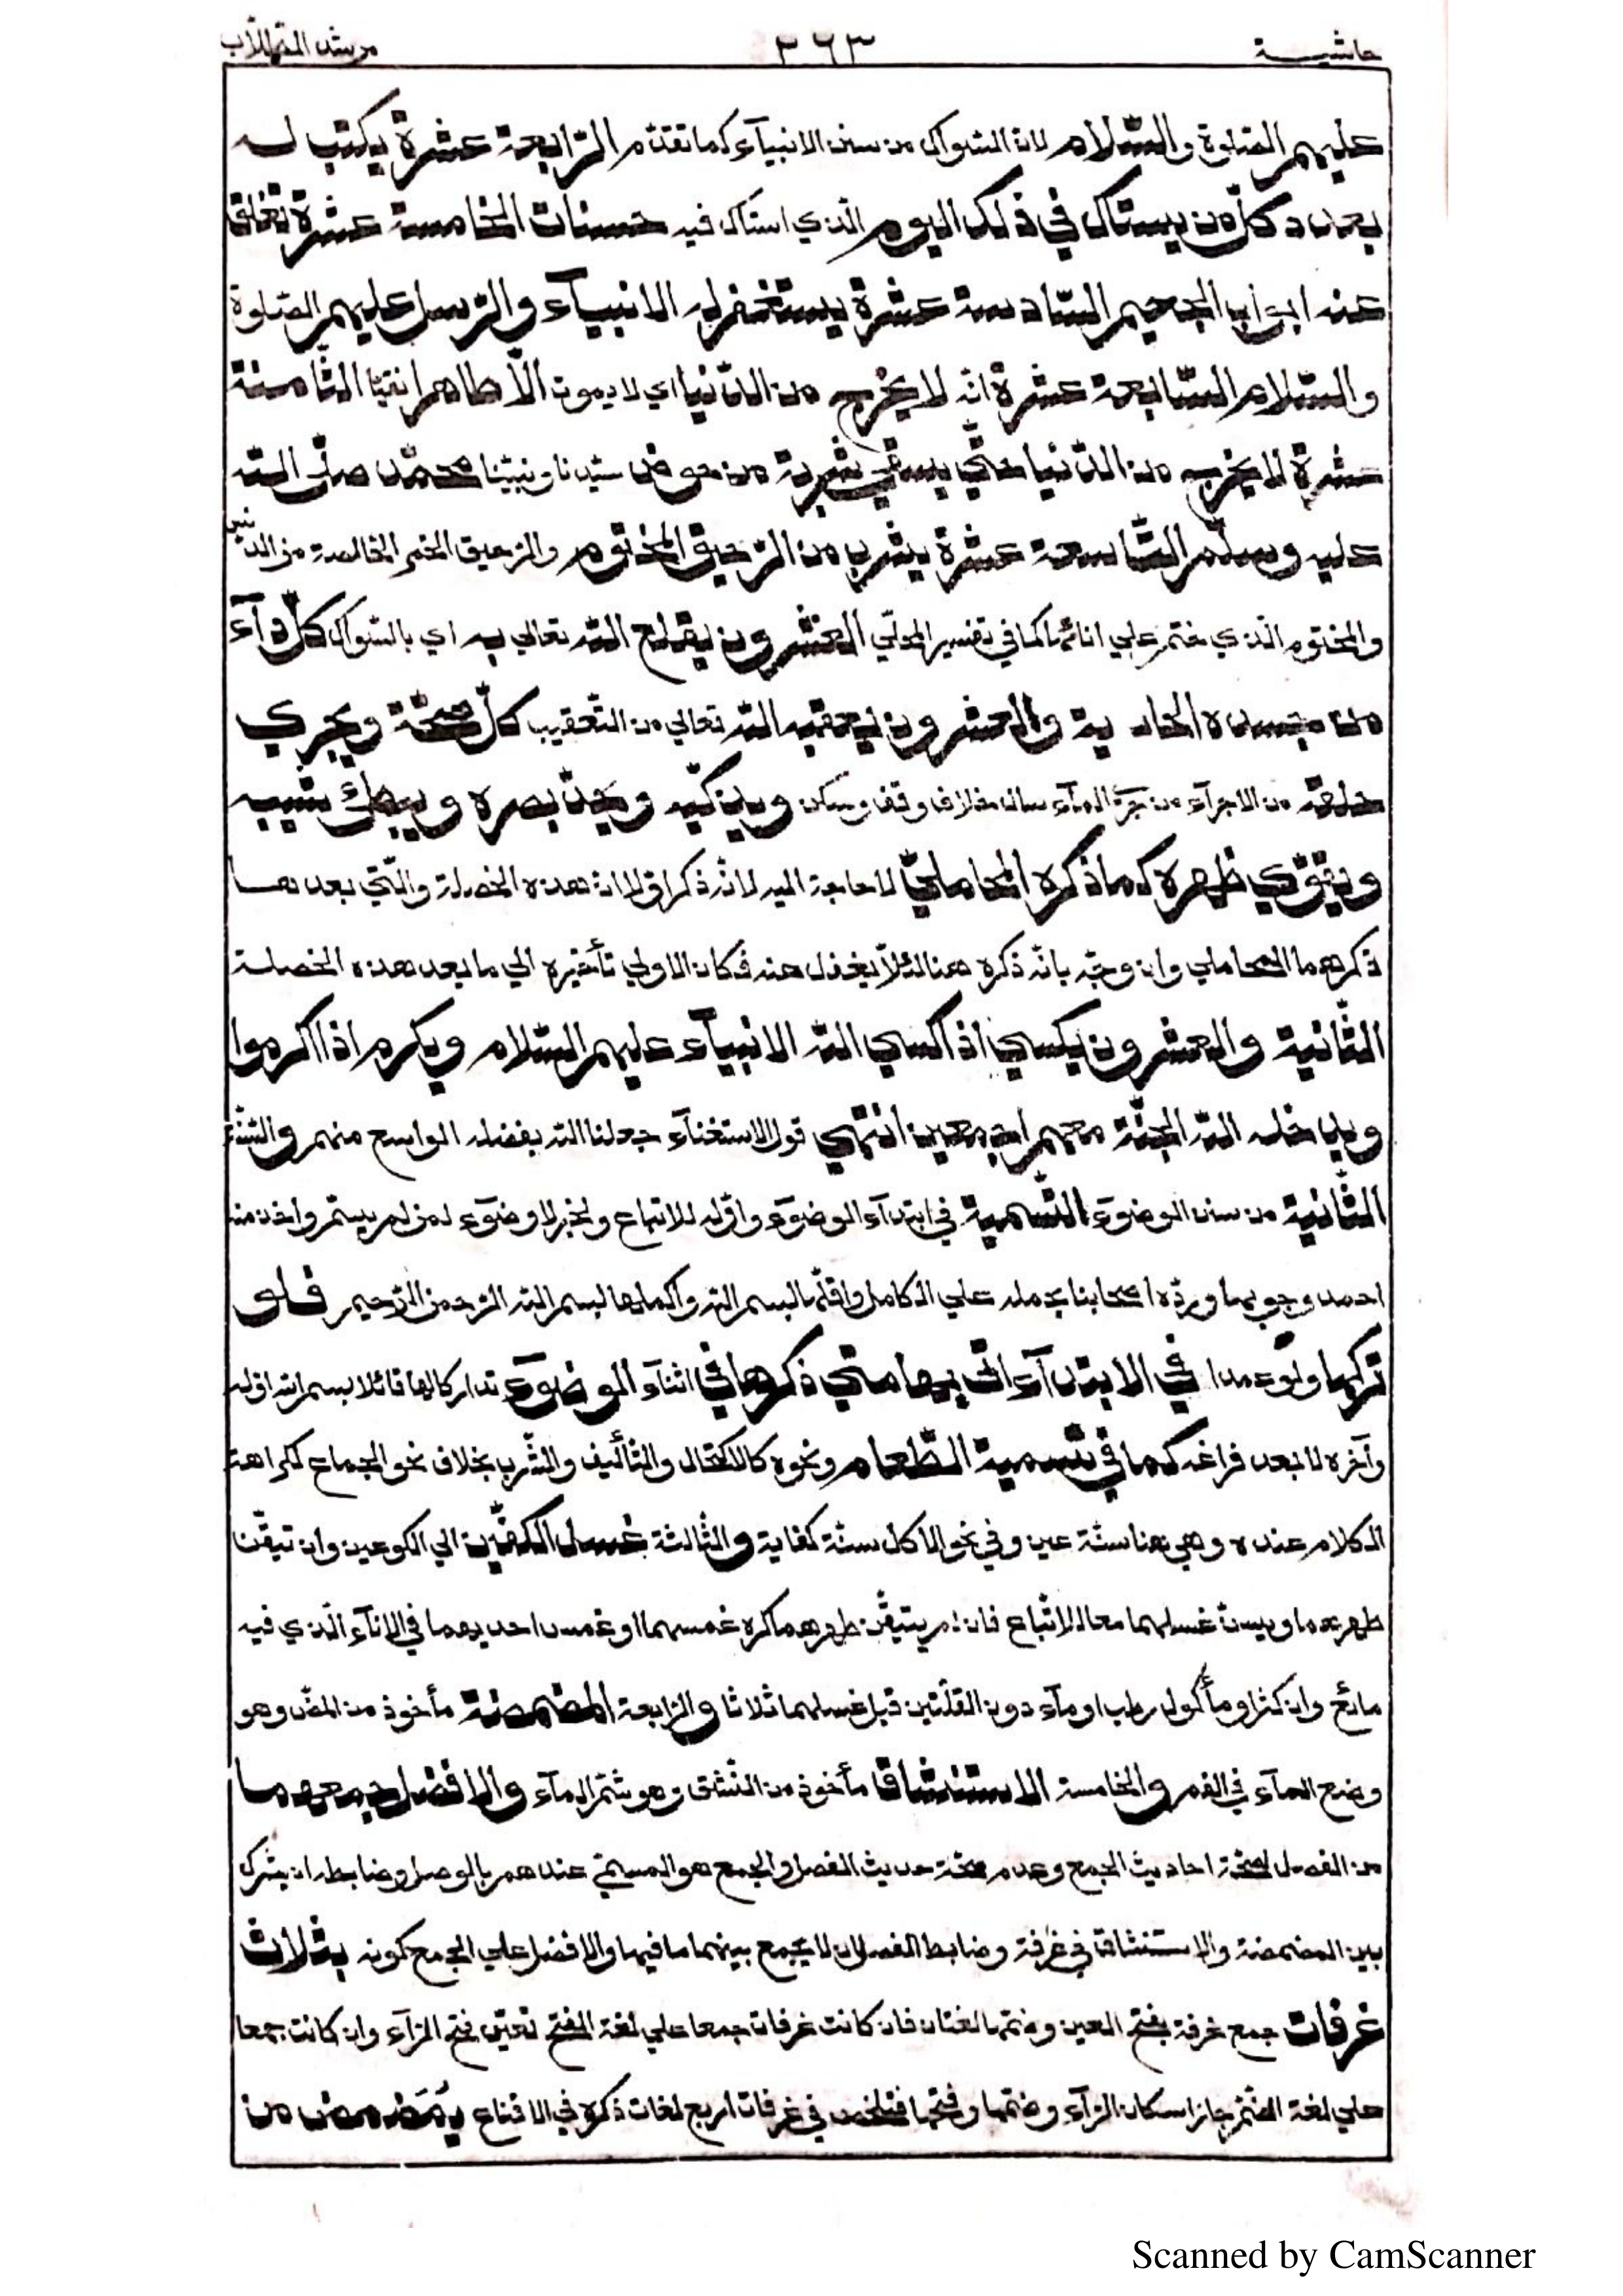 حاشيــــة ٣٦٣ مرشد الطلاب
عليهم الصلوة والسّلام لانّ السّواك من سنن الانبيآء كما تقدّم الرّابعة عشرة يكتب لـه
بعدد كلّ من يستاك في ذلك اليوم الّذي استاك فيه حسنات الخامسة عشرة تغلق
عنه ابواب الجحيم السّادسة عشرة يستغفر له الانبيآء والرّسل عليهم الصّلوة
والسّلام السّابعة عشرة انّه لا يخرج من الدّنيا اي لا يموت الّا طاهرا نقيّا الثّامنة
عشرة لا يخرج من الدّنيا حتّي يسقي شربة من حوض سيّدنا ونبيّنا محمّد صلّي اللّه
عليه وسلّم التّاسعة عشرة يشرب من الرّحيق المختوم والرّحيق الخمر الخالصة من الدّنس
والمختوم الّذي ختم علي انائها كما في تفسير المحلّي العشرون يقلع اللّه تعالي به اي بالسّواك كلّ دآء
من جسده الحادية والعشرون يعقبه اللّه تعالي من التّعقيب كلّ صحّة ويجري
خلعة من الاجرآء من جري المآء سال خلاف وقف وسكن ويذكّيه ويحدّ بصره ويبطئ شيبه
ويقوّي ظهره كما ذكره المحاملي لا حاجة اليه لانّه ذكر اوّلا انّ هذه الخصلة والّتي بعدهـا
ذكرهما المحاملي وان وجّه بانّه ذكره هنا لئلّا يغفل عنه فكان الاولي تأخيره الي ما بعد هذه الخصلـة
الثّانية والعشرون يكسي اذا كسي اللّه الانبيآء عليهم السّلام ويكرم اذا اكرموا
ويدخله اللّه الجنّة معهم اجمعين انتهي قول الاستغنآء جعلنا اللّه بفضله الواسع منهم والسّنّة
الثّانية من سنن الوضوء التّسمية في ابتدآء الوضوء واوّله للاتّباع ولخبر لا وضوء لمن لم يسمّ واخذ منه
احمد وجوبها وردّه اصحابنا بحمله علي الكامل واقلّها بسم اللّه واكملها بسم اللّه الرّحمن الرّحيم فلو
تركها ولو عمدا في الابتدآء اتي بها متي ذكرها في اثنآء الوضوء تداركا لها قائلا بسم اللّه اوّله
وآخره لا بعد فراغه كما في تسمية الطّعام ونحوه كالاكتحال والتّأليف والشّرب بخلاف نحو الجماع لكراهة
الكلام عنده وهي هنا سنّة عين وفي نحو الاكل سنّة كفاية والثّالثة غسل الكفّين الي الكوعين وان تيقّنا
طهرهما ويسنّ غسلهما معا للاتّباع فان لم يتيقّن طهرهما كره غمسهما او غمس احديهما في الانآء الّذي فيه
مائع وان كثر او مأكول رطب او مآء دون القلّتين قبل غسلهما ثلاثا والرّابعة المضمضة مأخوذ من المضّ وهو
وضع المآء في الفم والخامسة الاستنشاق مأخوذ من النّشق وهو شمّ المآء والافضل جمعهما
من الفصل لصحّة احاديث الجمع وعدم صحّة حديث الفصل والجمع هو المسمّي عندهم بالوصل وضابطه ان يشرك
بين المضمضة والاستنشاق في غرفة وضابط الفصل ان لا يجمع بينهما فيها والافضل علي الجمع كونه بثلاث
غرفات جمع غرفة بفتح الغين وضمّها لغتان فان كانت غرفات جمعا علي لغة الفتح تعيّن فتح الرّآء وان كانت جمعا
علي لغة الضّمّ جاز اسكان الرّآء وضمّها وفتحها فتلخّص في غرفات اربع لغات ذكره في الاقناع يُمَضمض من
Scanned by CamScanner